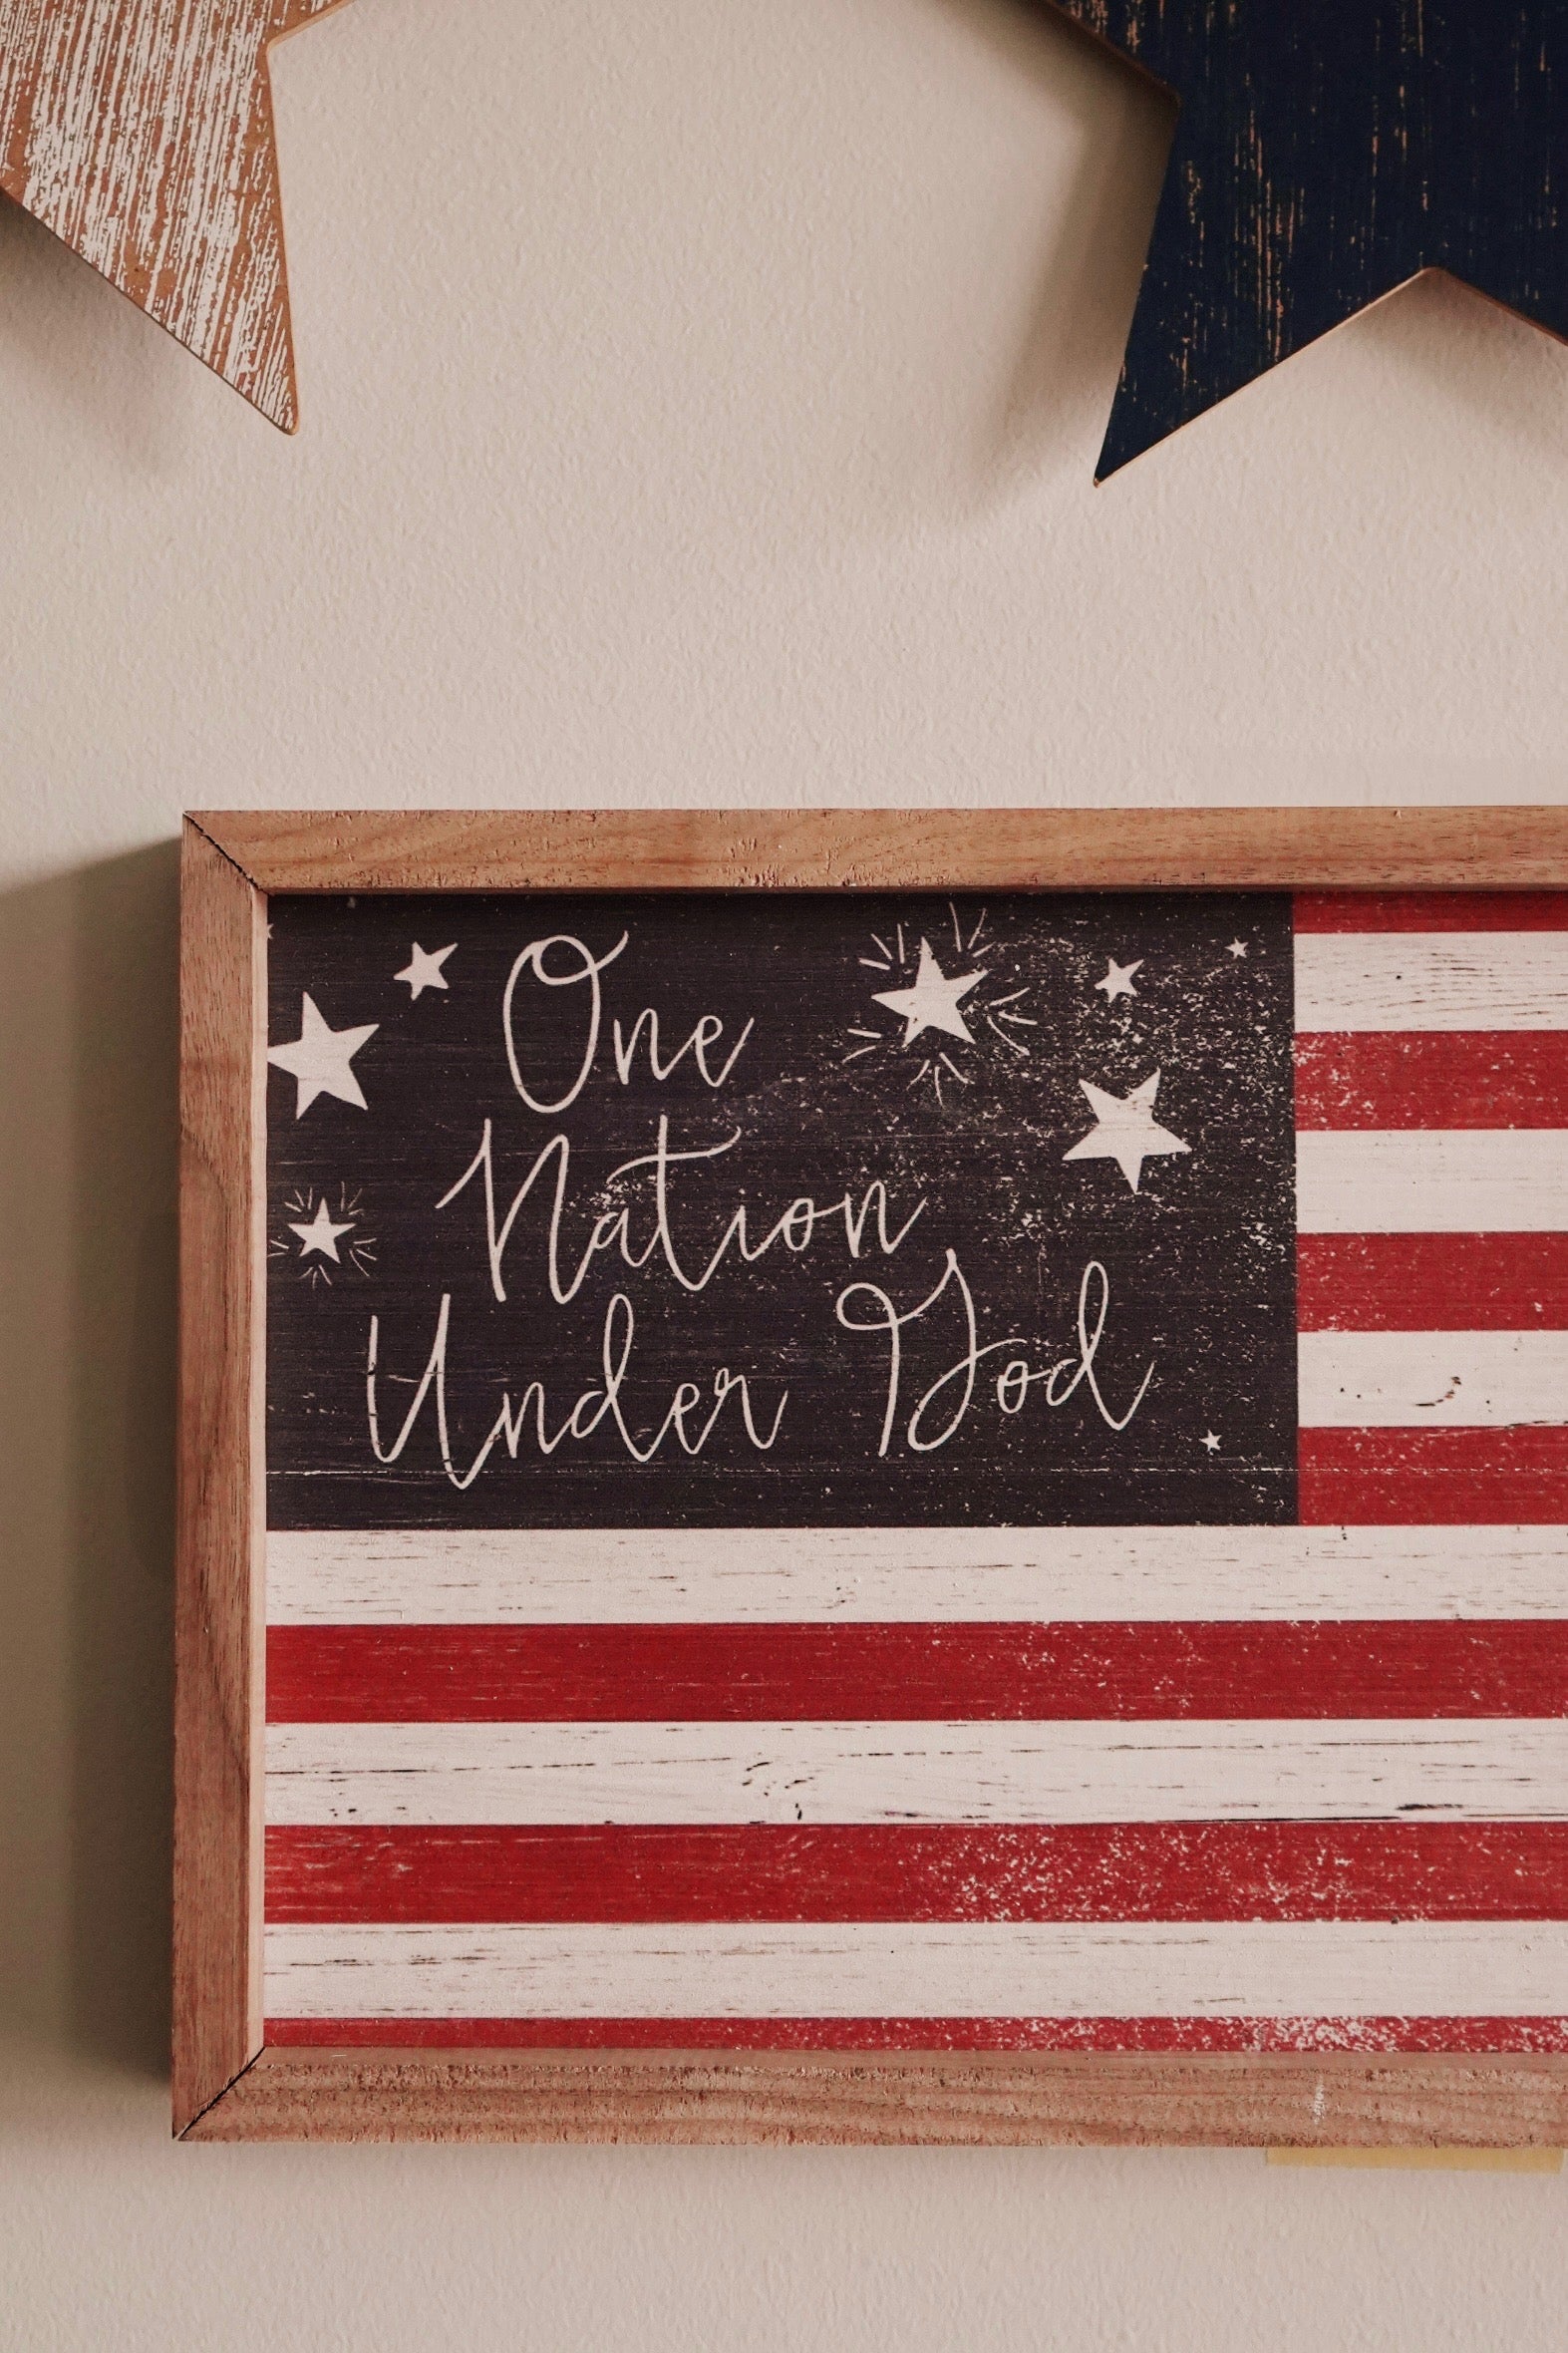 One
Nation
Under God